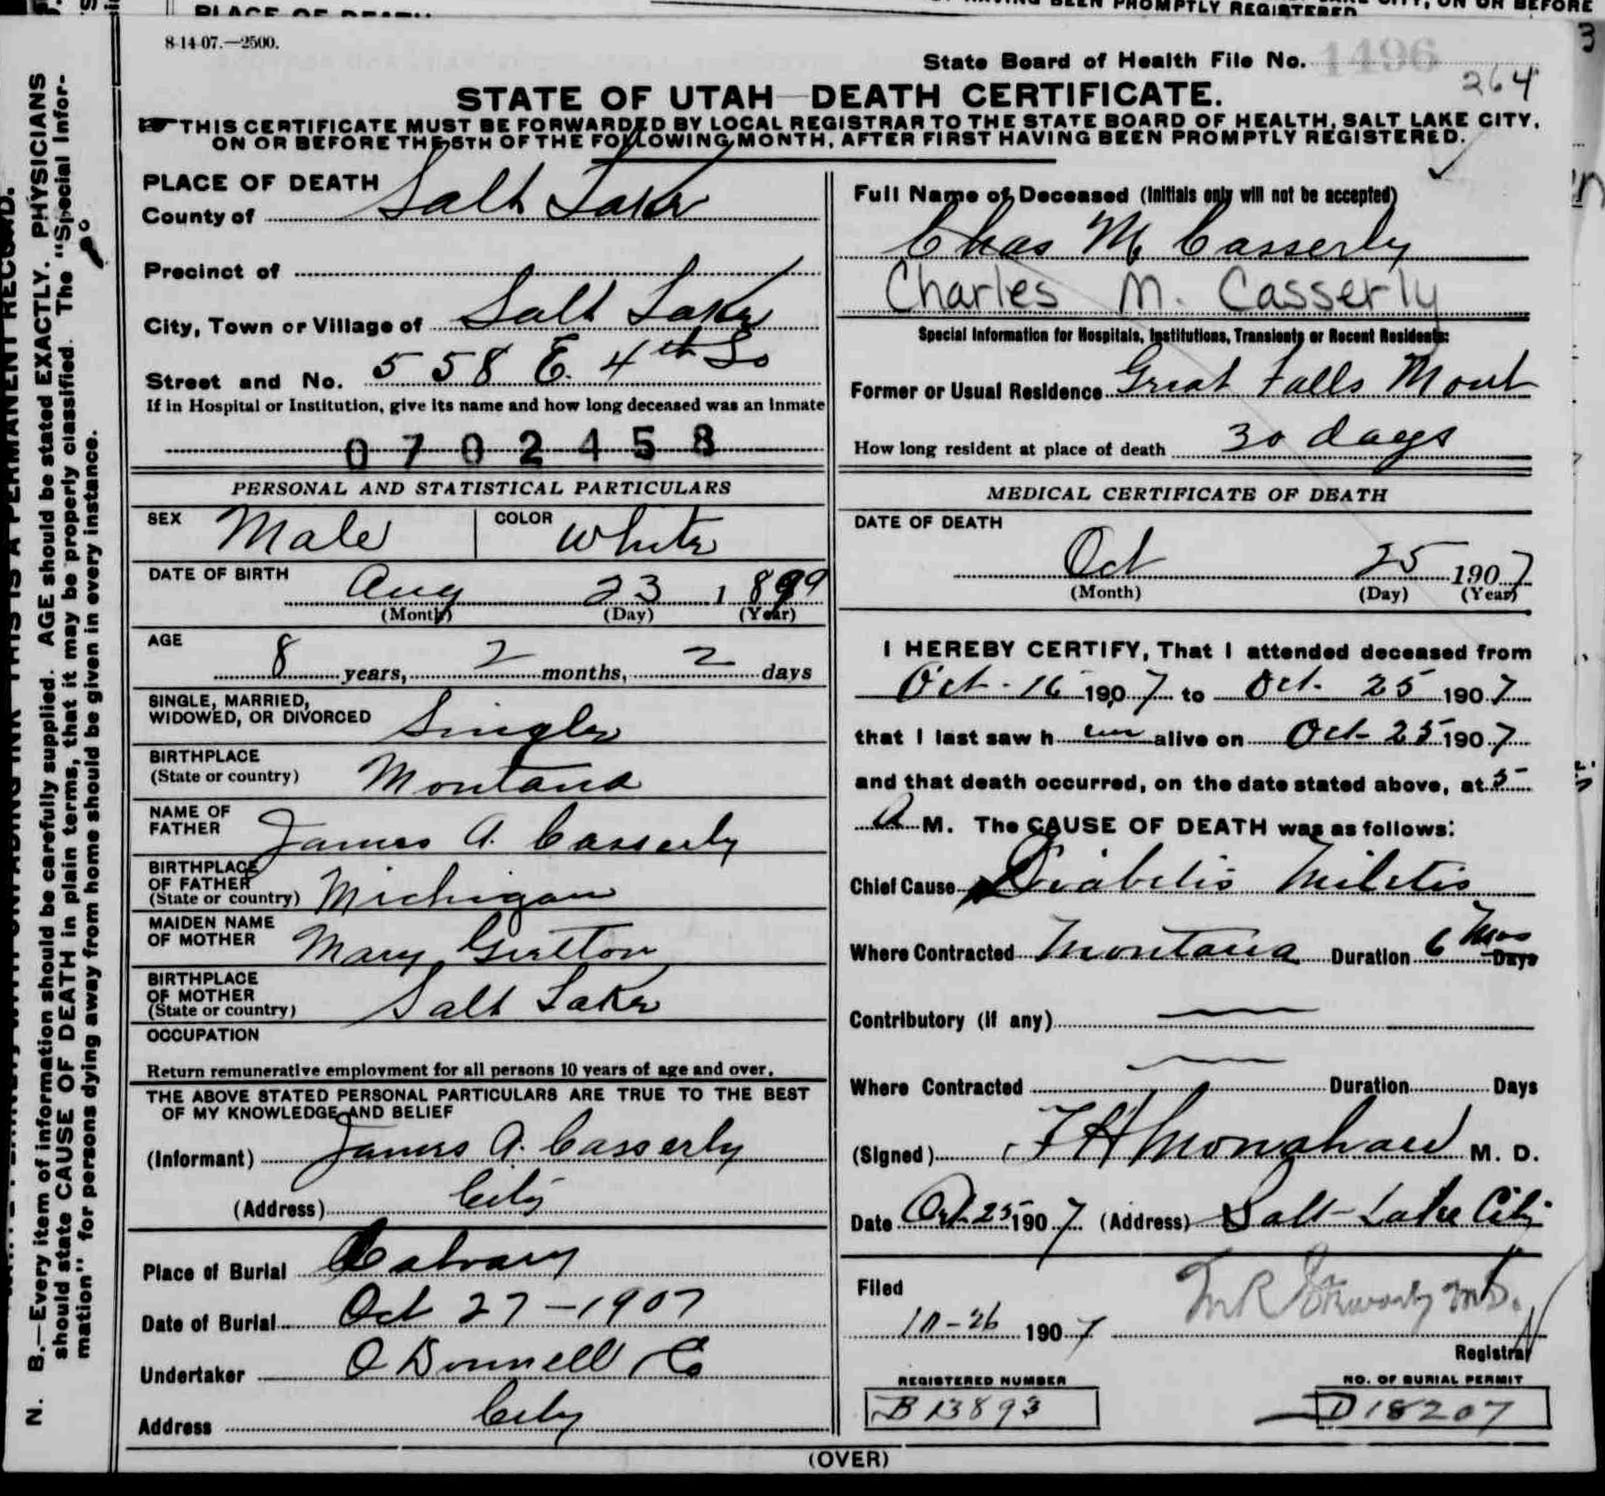 PLACE OF DEATH
BEEN PROMPTLY REGISTERED
8-14-07.—2500.
State Board of Health File No. 1496
264
STATE OF UTAH—DEATH CERTIFICATE.
THIS CERTIFICATE MUST BE FORWARDED BY LOCAL REGISTRAR TO THE STATE BOARD OF HEALTH, SALT LAKE CITY,
ON OR BEFORE THE 5TH OF THE FOLLOWING MONTH, AFTER FIRST HAVING BEEN PROMPTLY REGISTERED.
PLACE OF DEATH
County of Salt Lake
Precinct of
City, Town or Village of Salt Lake
Street and No. 558 E. 4th So
If in Hospital or Institution, give its name and how long deceased was an inmate
0702458
PERSONAL AND STATISTICAL PARTICULARS
SEX Male COLOR White
DATE OF BIRTH Aug 23 1899
(Month) (Day) (Year)
AGE 8 years, 2 months, 2 days
SINGLE, MARRIED,
WIDOWED, OR DIVORCED Single
BIRTHPLACE
(State or country) Montana
NAME OF
FATHER James A. Casserly
BIRTHPLACE
OF FATHER
(State or country) Michigan
MAIDEN NAME
OF MOTHER Mary
BIRTHPLACE
OF MOTHER
(State or country) Salt Lake
OCCUPATION
Return remunerative employment for all persons 10 years of age and over.
THE ABOVE STATED PERSONAL PARTICULARS ARE TRUE TO THE BEST
OF MY KNOWLEDGE AND BELIEF
(Informant) James A. Casserly
(Address) City
Place of Burial Calvary
Date of Burial Oct 27-1907
Undertaker O Donnell & Co
Address City
Full Name of Deceased (Initials only will not be accepted)
Chas M Casserly
Charles M. Casserly
Special Information for Hospitals, Institutions, Transients or Recent Residents:
Former or Usual Residence Great Falls Mont
How long resident at place of death 30 days
MEDICAL CERTIFICATE OF DEATH
DATE OF DEATH
Oct 25 1907
(Month) (Day) (Year)
I HEREBY CERTIFY, That I attended deceased from
Oct. 16 1907 to Oct. 25 1907
that I last saw him alive on Oct 25 1907
and that death occurred, on the date stated above, at 5
A M. The CAUSE OF DEATH was as follows:
Chief Cause Diabetis Miletis
Where Contracted Montana Duration 6 Mos Days
Contributory (if any) —
Where Contracted — Duration Days
(Signed) F H Monahan M. D.
Date Oct 25 1907 (Address) Salt Lake City
Filed
10-26 1907
Registrar
REGISTERED NUMBER
B13893
NO. OF BURIAL PERMIT
D18207
(OVER)
N. B.—Every item of information should be carefully supplied. AGE should be stated EXACTLY. PHYSICIANS
should state CAUSE OF DEATH in plain terms, that it may be properly classified. The "Special Infor-
mation" for persons dying away from home should be given in every instance.